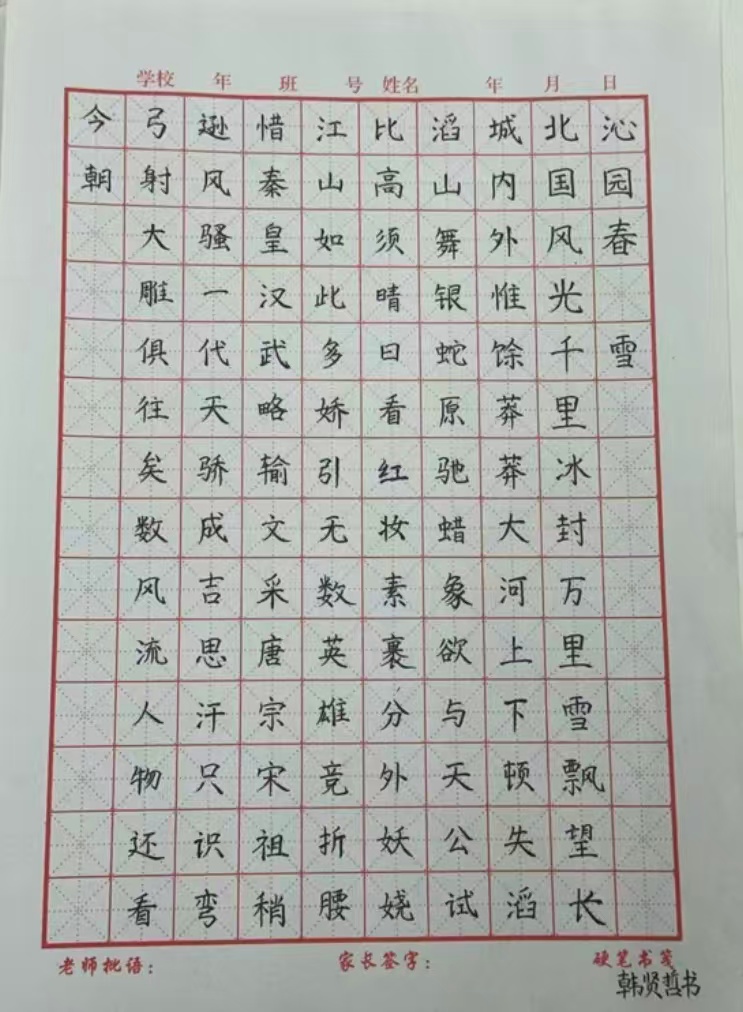 学校 年 班 号 姓名 年 月 日
沁园春 雪
北国风光千里冰封万里雪飘望长
城内外惟馀莽莽大河上下顿失滔
滔山舞银蛇原驰蜡象欲与天公试
比高须晴日看红妆素裹分外妖娆
江山如此多娇引无数英雄竞折腰
惜秦皇汉武略输文采唐宗宋祖稍
逊风骚一代天骄成吉思汗只识弯
弓射大雕俱往矣数风流人物还看
今朝
老师批语： 家长签字： 硬笔书笺
韩贤哲书